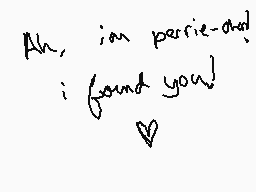 Ah, im perrie-oher!
i found you!
♡